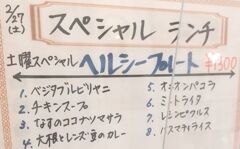 2/27
(土)
スペシャル ランチ
土曜スペシャル ヘルシープレート ¥1300
1. ベジタブルビリヤニ
2. チキンスープ
3. なすのココナツマサラ
4. 大根とレンズ豆のカレー
5. オニオンパコラ
6. ミートライタ
7. レモンピクルス
8. バスマティライス